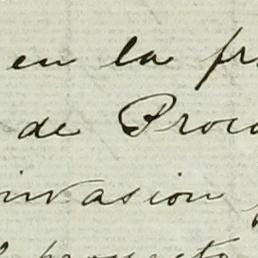 en la fr
de Proc
invasion